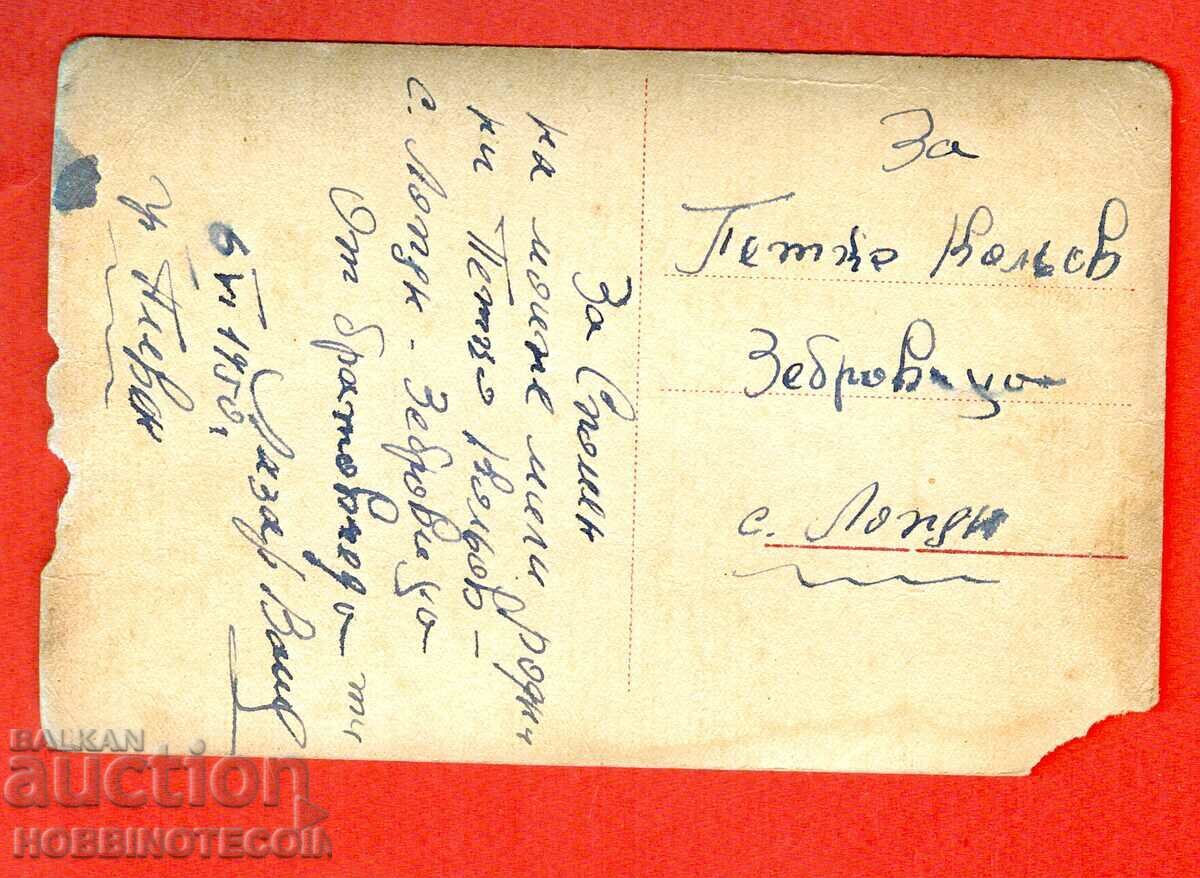 За Спомен
на моите мили родни
ни Петко Колов -
с. Лопян - Зебровица
От братовчеда ти
Лазар
6 VI 1950,
гр Плевен
За
Петко Колов
Зебровица
с. Лопян
BALKAN
auction
HOBBINOTECOM